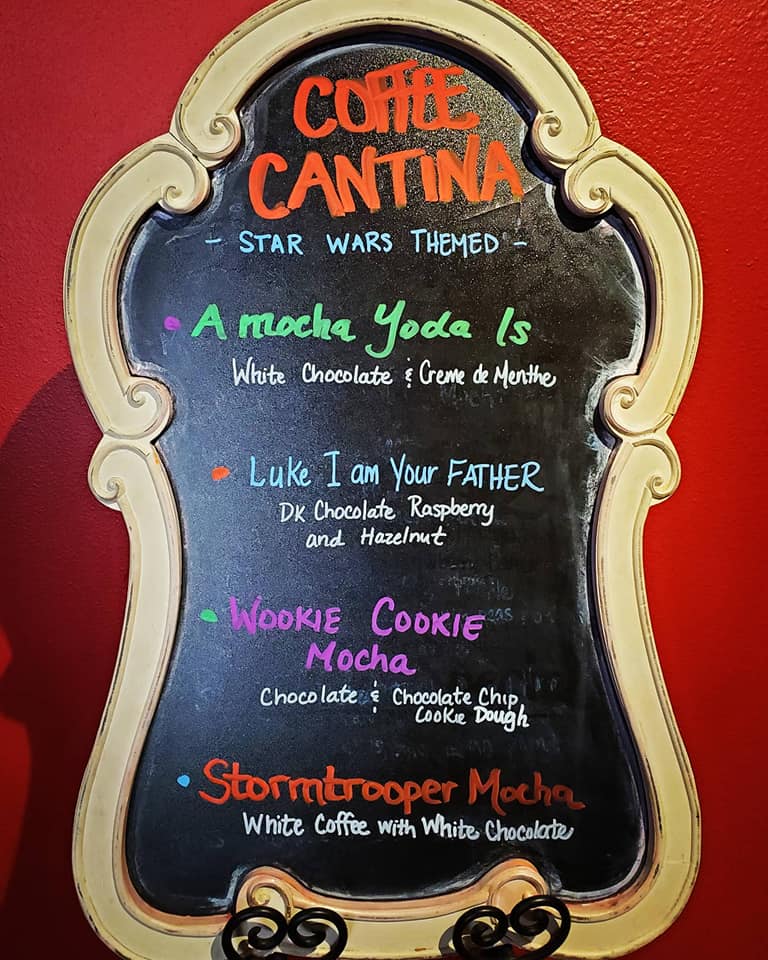 COFFEE
CANTINA
- STAR WARS THEMED -
• A mocha Yoda Is
White Chocolate & Creme de Menthe
• Luke I am Your FATHER
DK Chocolate Raspberry
and Hazelnut
• WOOKIE COOKIE
Mocha
Chocolate & Chocolate Chip
Cookie Dough
• Stormtrooper Mocha
White Coffee with White Chocolate